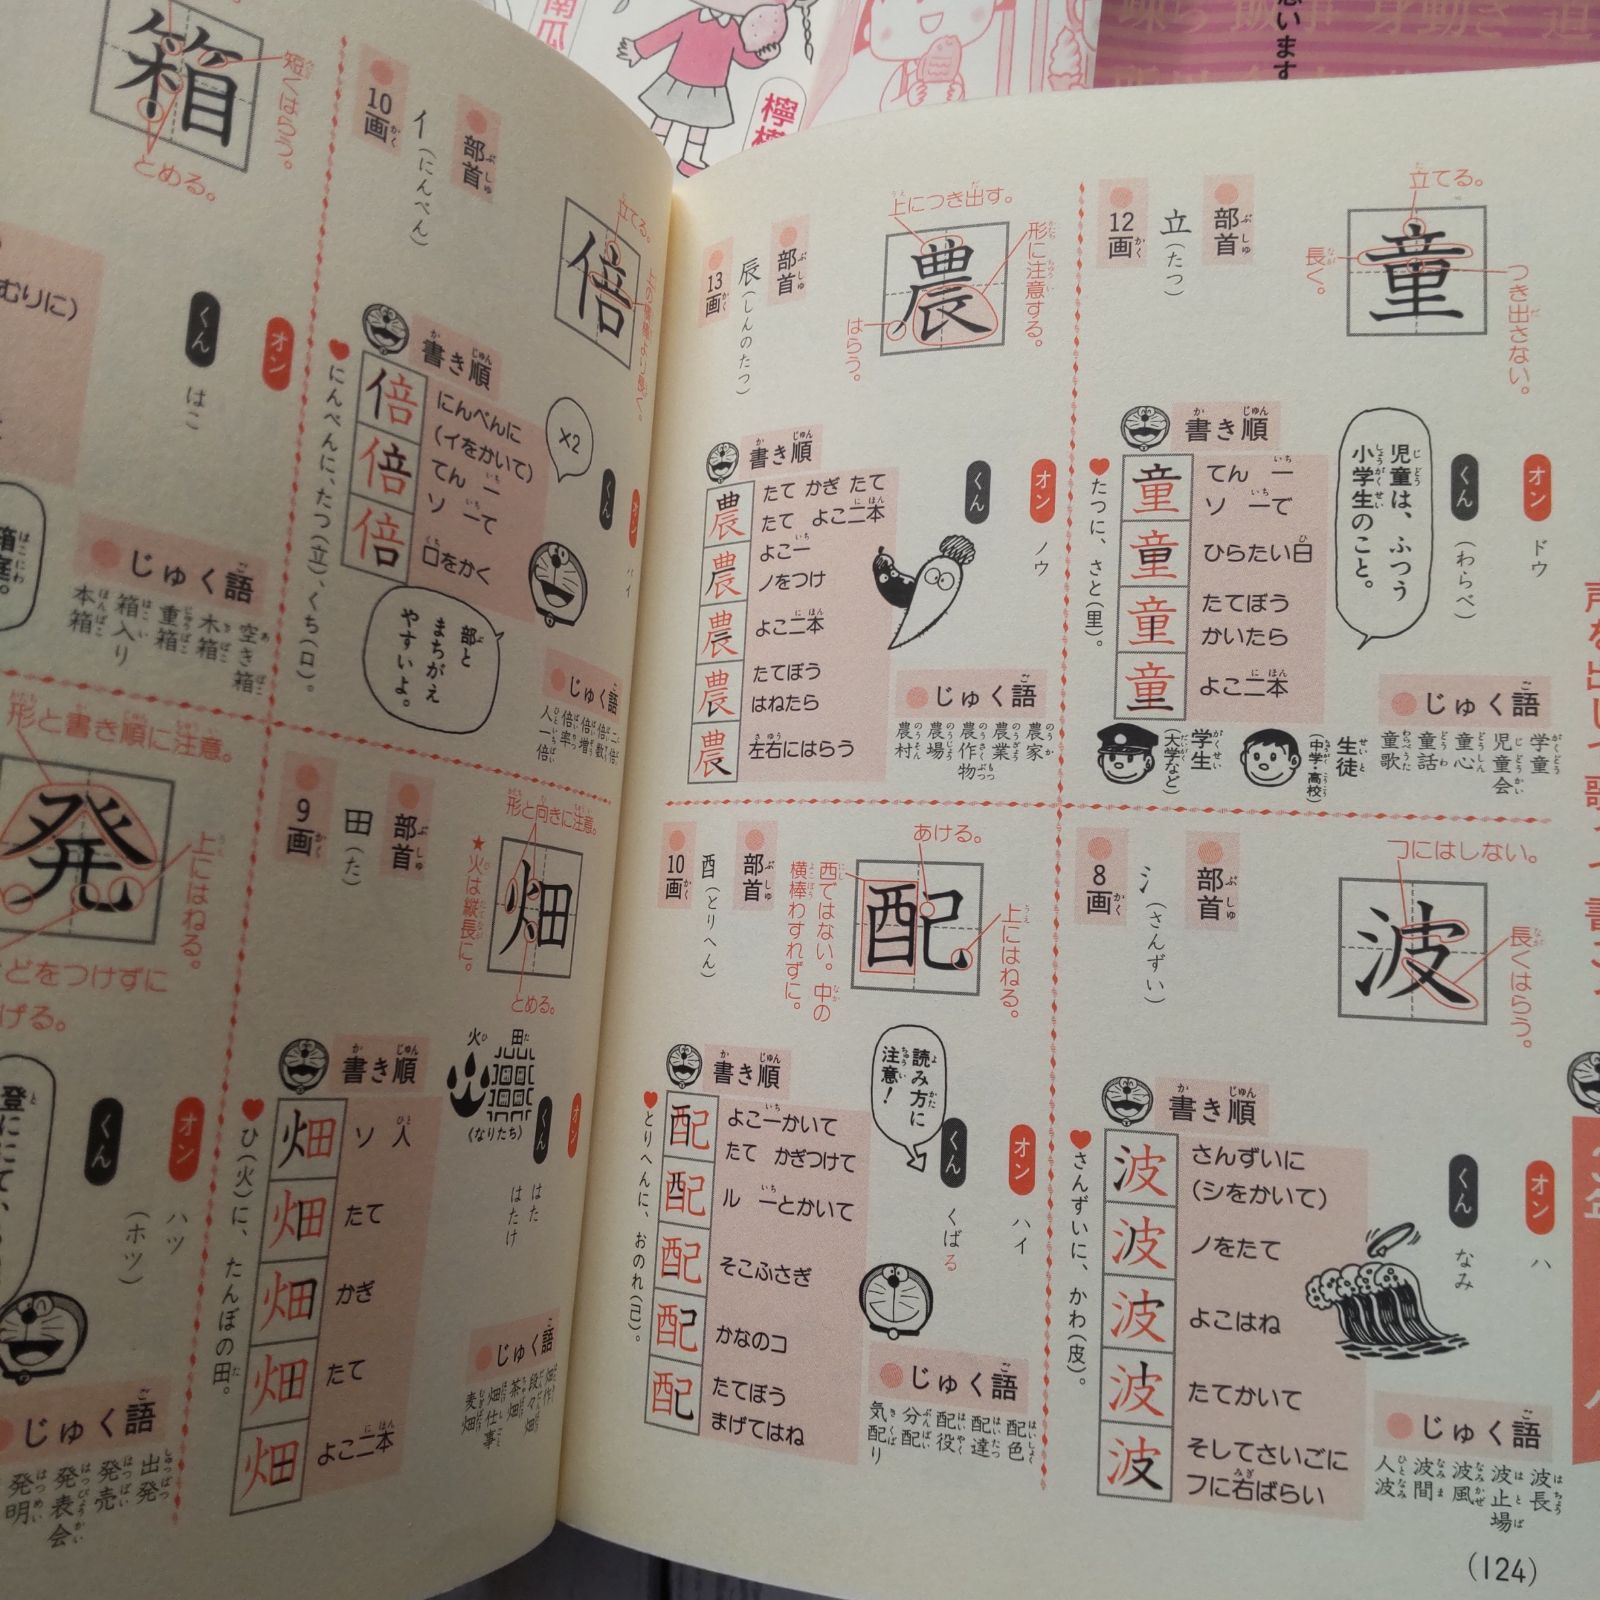 童
立てる。
長く。
つき出さない。
部首
立(たつ)
12画
オン
ドウ
くん
(わらべ)
児童は、ふつう
小学生のこと。
書き順
童
てん 一
ソ 一で
童
ひらたい日
童
たてぼう
かいたら
童
よこ二本
たつに、さと(里)。
じゅく語
学童
児童会
童心
童話
童歌
生徒
(中学・高校)
学生
(大学など)
波
フにはしない。
長くはらう。
部首
氵(さんずい)
8画
オン
ハ
くん
なみ
書き順
波
さんずいに
(シをかいて)
波
ノをたて
波
よこはね
波
たてかいて
波
そしてさいごに
フに右ばらい
さんずいに、かわ(皮)。
じゅく語
波長
波止場
波風
波間
人波
農
上につき出す。
形に注意する。
はらう。
部首
辰(しんのたつ)
13画
オン
ノウ
くん
書き順
農
たて かぎ たて
たて よこ二本
農
よこ一
ノをつけ
農
よこ二本
農
たてぼう
はねたら
農
左右にはらう
じゅく語
農家
農業
農作物
農場
農村
配
あける。
上にはねる。
西ではない。中の
横棒わすれずに。
部首
酉(とりへん)
10画
オン
ハイ
くん
くばる
読み方に
注意!
書き順
配
よこ一かいて
たて かぎつけて
配
ル 一とかいて
配
そこふさぎ
配
かなのコ
配
たてぼう
まげてはね
とりへんに、おのれ(己)。
じゅく語
配色
配達
配役
分配
気配り
(124)
倍
立てる。
部首
イ(にんべん)
10画
オン
バイ
くん
×2
書き順
倍
にんべんに
(イをかいて)
倍
てん 一
ソ 一て
倍
口をかく
にんべんに、たつ(立)、くち(口)。
部と
まちがえ
やすいよ。
じゅく語
二倍
倍数
倍増
倍率
人一倍
畑
形と向きに注意。
★火は縦長に。
とめる。
部首
田(た)
9画
オン
くん
はた
はたけ
火
田
(なりたち)
書き順
畑
ソ 人
畑
たて
畑
かぎ
畑
たて
畑
よこ二本
ひ(火)に、たんぼの田。
じゅく語
畑作
段々畑
茶畑
畑仕事
麦畑
箱
短くはらう。
とめる。
むりに)
オン
くん
はこ
じゅく語
空き箱
木箱
重箱
箱入り
本箱
発
形と書き順に注意。
上にはねる。
どをつけずに
げる。
オン
ハツ
(ホツ)
くん
じゅく語
出発
発売
発表会
発明
南瓜
思います